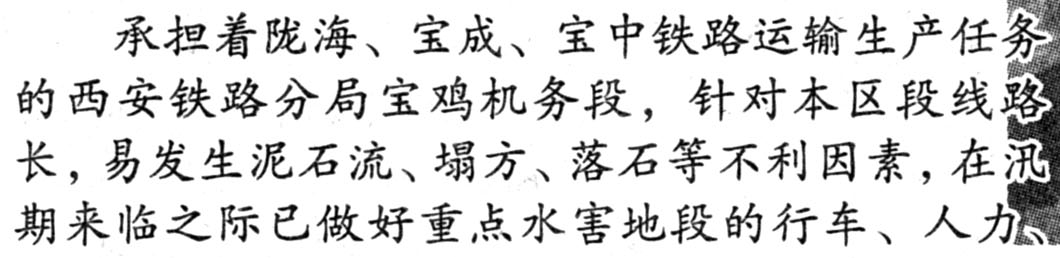 承担着陇海、宝成、宝中铁路运输生产任务
的西安铁路分局宝鸡机务段，针对本区段线路
长，易发生泥石流、塌方、落石等不利因素，在汛
期来临之际已做好重点水害地段的行车、人力、